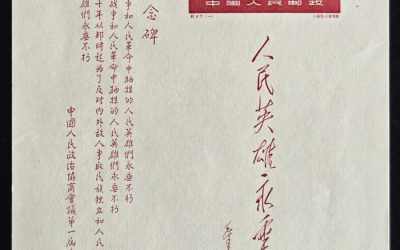 中國人民郵政
人民英雄永垂
念碑
争和人民革命中牺牲的人民英雄們永垂不朽
战争和人民革命中牺牲的人民英雄們永垂不朽
十年从那时起为了反对内外敌人争取民族独立和人民
雄們永垂不朽
中國人民政治協商會議第一届